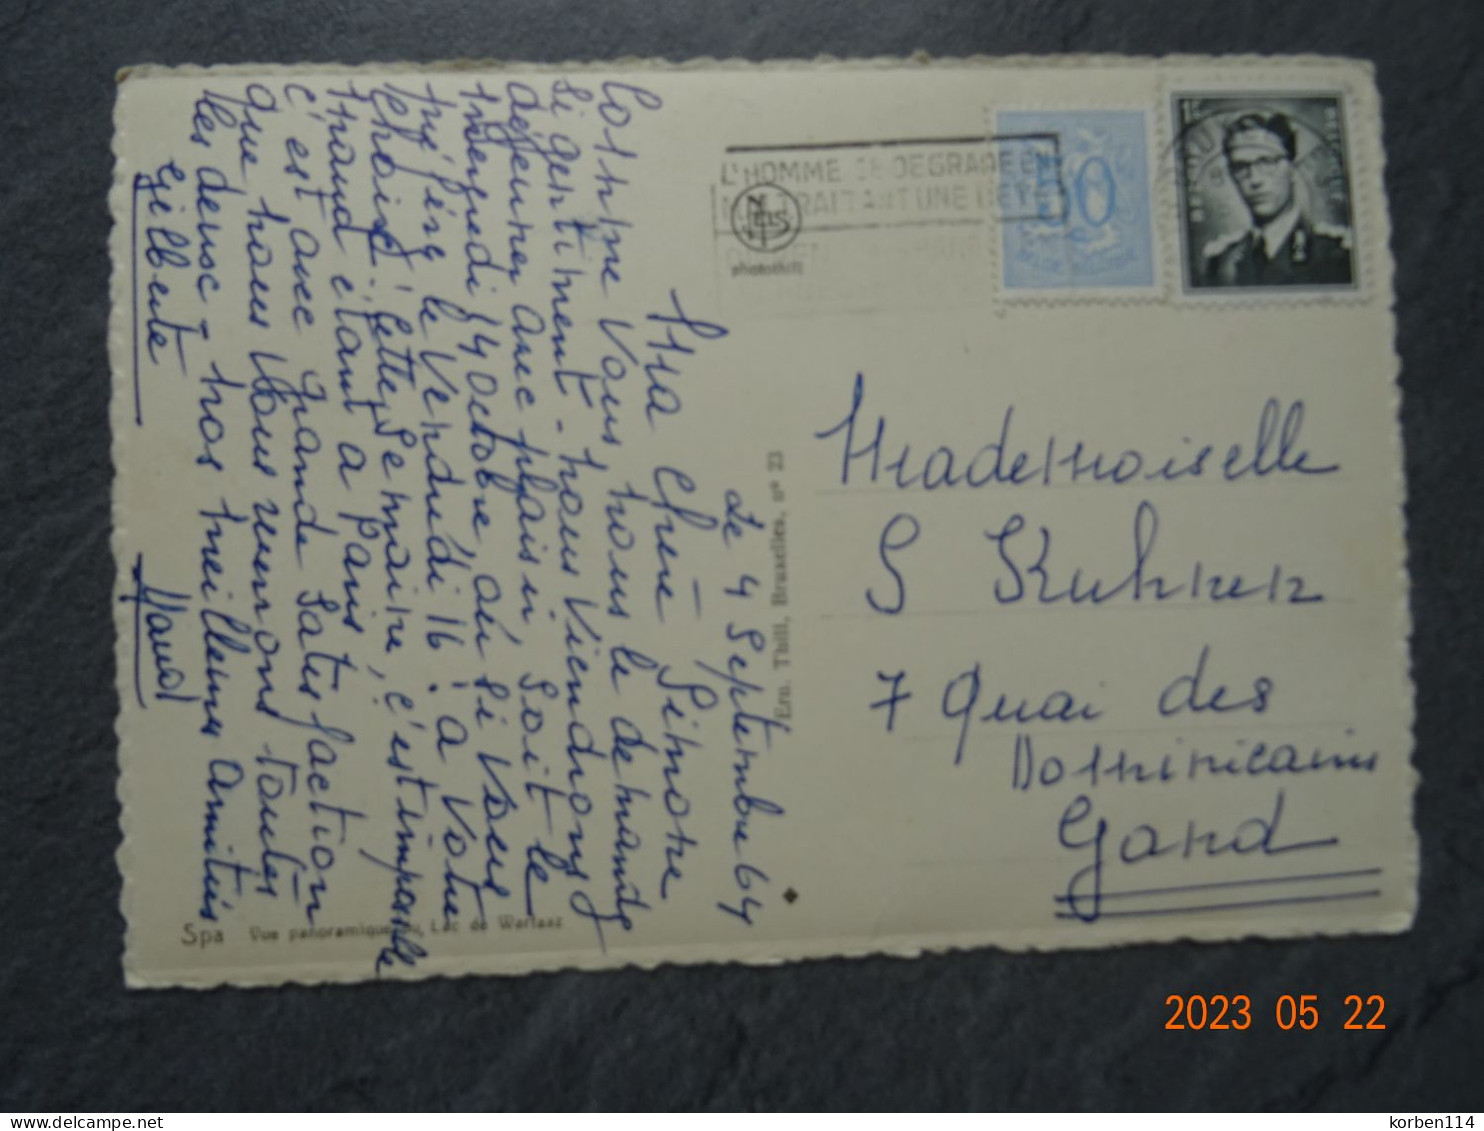 Le 4 Septembre 64
Ma Chère Simone
Comme Vous nous le demandez
si gentiment - nous viendrons
déjeuner avec plaisir, soit le
mercredi 14 octobre, où si Vous
préférez le Vendredi 16 à Votre
choix. Cette semaine, c'est impossible
Maud étant a Paris.
C'est avec grande satisfaction
que nous Vous reverrons toutes
les deux - nos meilleures amitiés
Gilberte Maud
L'HOMME SE DEGRADE EN
MALTRAITANT UNE BETE
50
NELS
photothill
Mademoiselle
S Kuhnen
7 Quai des
Dominicains
Gand
Ern. Thill, Bruxelles. nº 23
Spa Vue panoramique du Lac de Warfaaz
2023 05 22
korben114